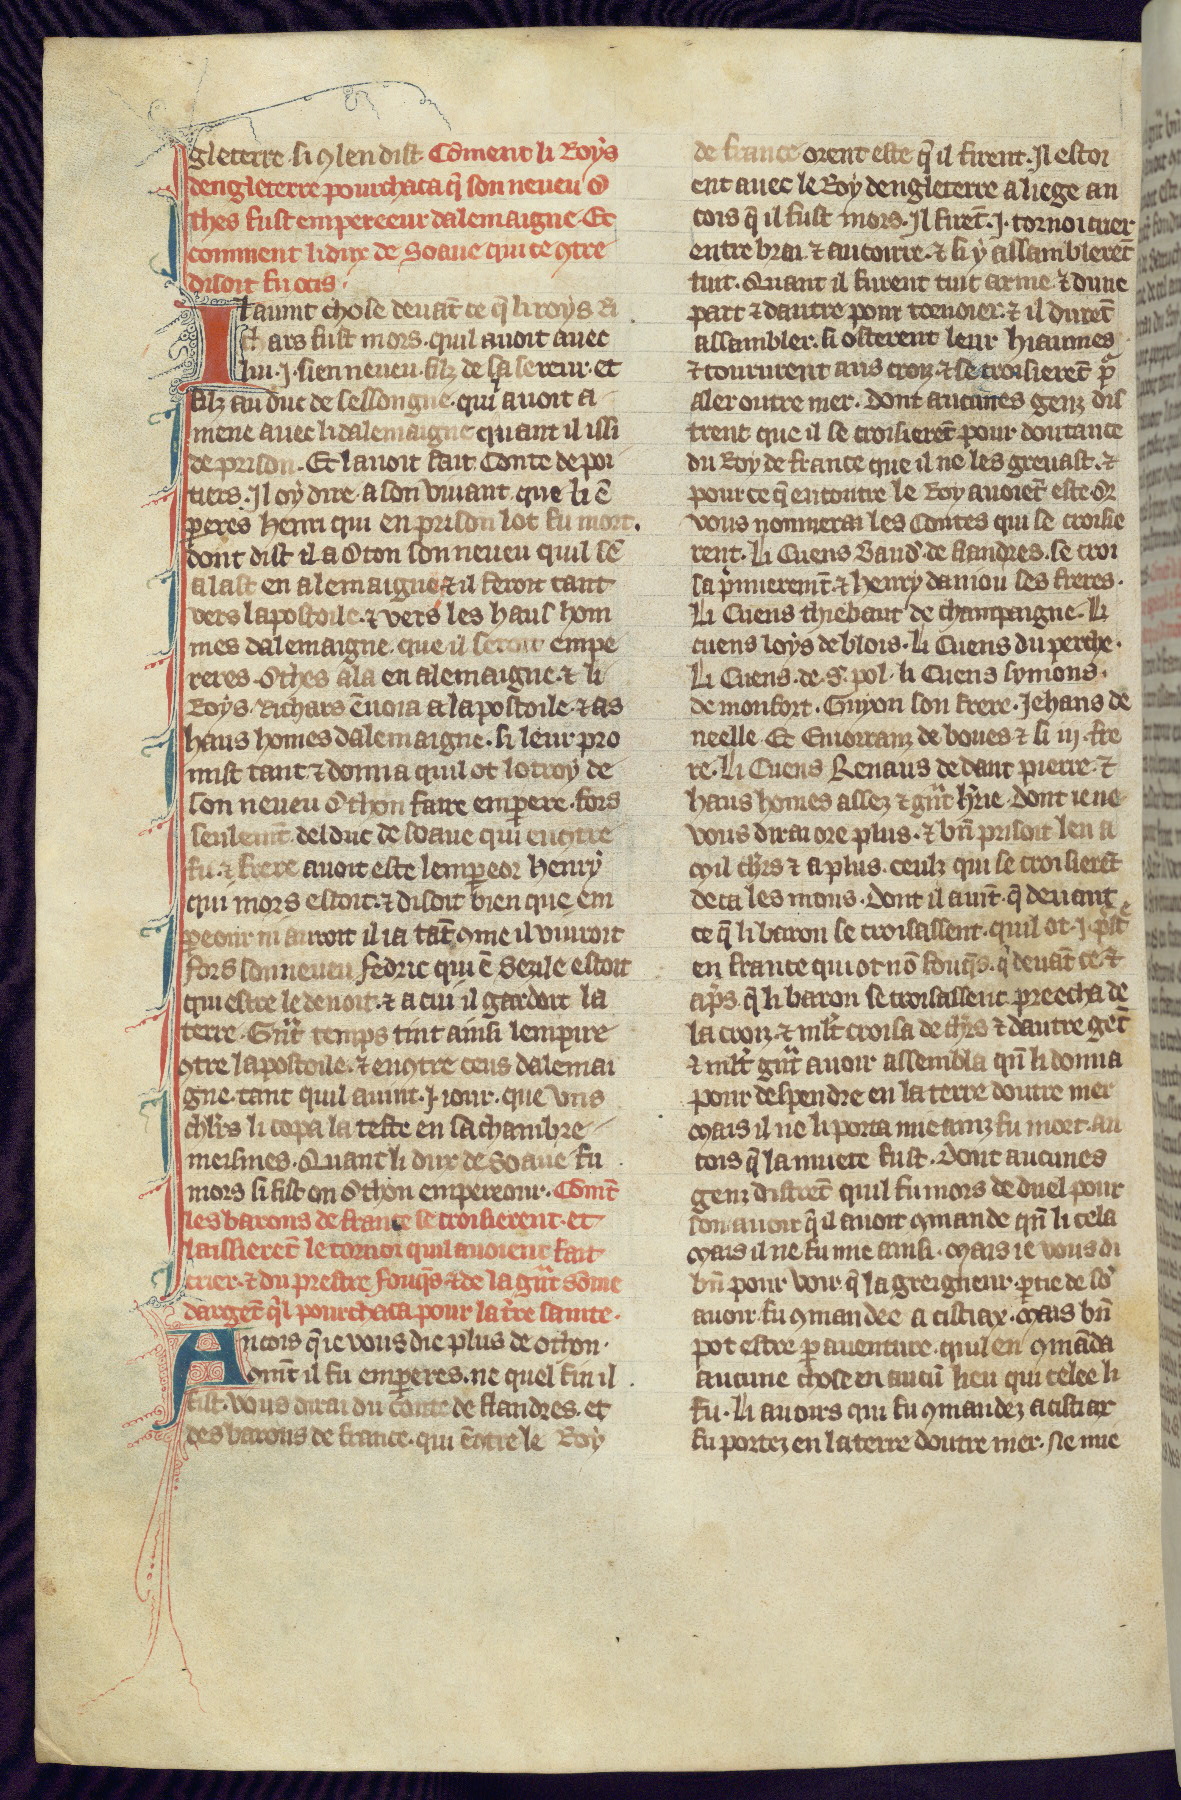 gleterre. si ꝯ len dist. Cōment li Roys
dengleterre pourchaca q̄ son neueu O
thes fust empereeur dalemaigne. Et
comment li dux de Soaue qui ce ꝯtre
disoit fu ocis.
Il auint chose deuāt ce q̄ li roys Ri
chars fust mors. quil auoit auec
lui .J. sien neueu. filz de sa sereur. et
filz au duc de sessongne. qui auoit a
mene auec li dalemaigne quant il issi
de prison. Et lauoit fait Conte de poi
tiers. Il oy dire a son viuant que li ē
peres henri qui en prison lot fu mort.
dont dist il a Oton son neueu quil sē
alast en alemaigne ⁊ il feroit tant
vers lapostoile. ⁊ vers les haus hom
mes dalemaigne. que il seroit empe
reres. Othes ala en alemaigne. ⁊ li
Roys. Richars ēuoia a lapostoile. ⁊ as
haus homes dalemaigne. si leur pro
mist tant ⁊ donna quil ot lotroy de
son neueu Othon faire empere. fors
seulemt̄. del duc de soaue qui encꝯtre
fu. ⁊ frere auoit este lempeor henry
qui mors estoit. ⁊ disoit bien que em
peour ni auroit il ia tāt ꝯme il viuroit
fors son neueu fedric qui ē Sezile estoit
qui estre le deuoit. ⁊ a cui il gardoit la
terre. Gūt temps tint ainsi lempire
ꝯtre lapostoile. ⁊ encꝯtre ceus dalemai
gne. tant quil auint .J. iour. que vns
chl̄rs li copa la teste en sa chambre
meismes. Quant li dux de Soaue fu
mors si fist on Othon empereour. Cōmt̄
les barons de france se croisierent. et
laissierēt le tornoi quil auoient fait
crier. ⁊ du prestre fouq̄s. ⁊ de la gūt sōme
dargēt q̄l pourchaca pour la t̄re sainte.
Ancois q̄ ie vous die plus de othon.
comt̄ il fu emperes. ne quel fin il
fist. vous dirai du conte de flandres. et
des barons de france. qui ēcōtre le Roy
de france orent este q̄ il firent. Il estoi
ent auec le Roy dengleterre a liege an
cois q̄ il fust mors. Il firēt .J. tornoi crier
entre brai. ⁊ ancoirre. ⁊ si y assamblerēt
tuit. Quant il furent tuit arme. ⁊ dune
part ⁊ dautre pour tornoier. ⁊ il durēt
assambler. si osterent leur hiaumes
⁊ coururent aus croiz. ⁊ se croisierēt pr
aler outre mer. Dont aucunes genz dis
trent que il se croisierēt pour doutance
du Roy de france que il ne les greuast. ⁊
pour ce q̄ encontre le Roy auoiēt este. Or
vous nommerai les Contes qui se croisie
rent. Li Cuens Baud. de flandres. se croi
sa p̄mieremt̄. ⁊ henry daniou ses freres.
Li Cuens thiebaut de champaigne. Li
cuens loys de blois. Li Cuens du perche.
Li Cuens. de. S. pol. li Cuens symons.
de monfort. Guyon son frere. Jehans de
neelle. Et Eniorranz de boues ⁊ si .iij. fre
re. Li Cuens Renaus de dant pierre. ⁊
haus homes assez ⁊ gūt h̄rie. Dont ie ne
vous dirai ore plus. ⁊ bn̄ prisoit len a
Mil chl̄rs ⁊ a plus. ceulz qui se croisierēt
deca les mons. Dont il auīt. q̄ deuant
ce q̄ li baron se croisassent. quil ot .J. pstē
en france qui ot nō fouq̄s. q̄ deuāt ce ⁊
ap̄s. q̄ li baron se croisassent. preecha de
la croiz. ⁊ ml̄t croisa de chl̄rs ⁊ dautre gēt
⁊ ml̄t gūt auoir assembla qn̄ li donna
pour despendre en la terre doutre mer
Mais il ne li porta mie ainz fu mort. an
cois q̄ la muete fust. Dont aucunes
genz distrēt quil fu mors de duel pour
son auoir q̄ il auoit ꝯmande qn̄ li cela
Mais il ne fu mie ainsi. Mais ie vous di
bn̄ pour voir q̄ la greigneur ptie de sō
auoir fu ꝯmandee a cistiax. Mais bn̄
pot estre p auenture. quil en ꝯmāda
aucune chose en aucū lieu qui celee li
fu. Li auoirs qui fu ꝯmandez a cistiax
fu portez en la terre doutre mer. Ne mie